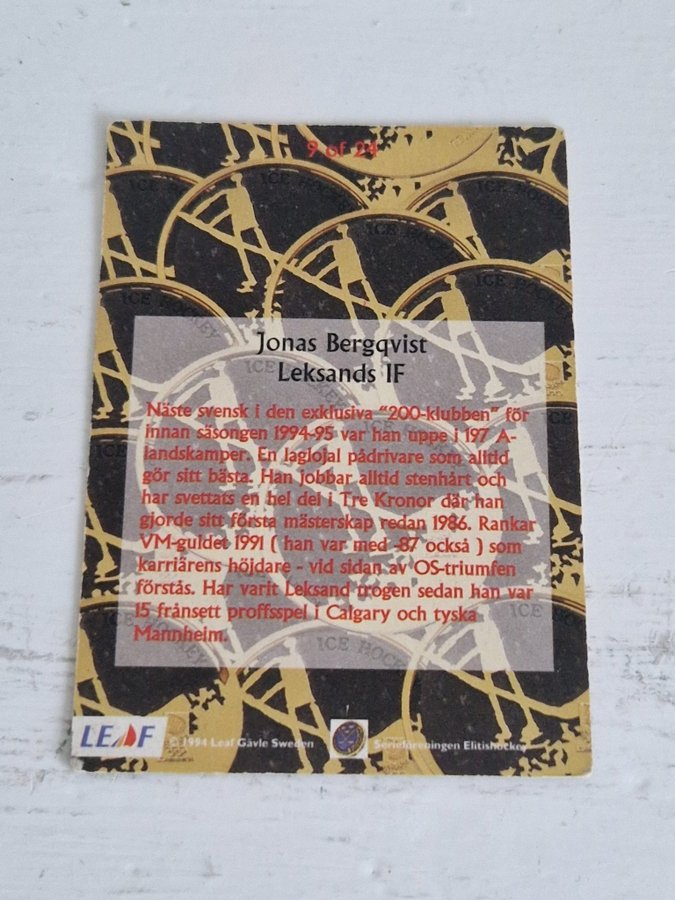 9 of 24
ICE HOCKEY
ICE HOCKEY
ICE HOCKEY
ICE HOCKEY
ICE HOCKEY
Jonas Bergqvist
Leksands IF
Näste svensk i den exklusiva “200-klubben” för
innan säsongen 1994-95 var han uppe i 197 A-
landskamper. En laglojal pådrivare som alltid
gör sitt bästa. Han jobbar alltid stenhårt och
har svettats en hel del i Tre Kronor där han
gjorde sitt första mästerskap redan 1986. Rankar
VM-guldet 1991 ( han var med -87 också ) som
karriärens höjdare - vid sidan av OS-triumfen
förstås. Har varit Leksand trogen sedan han var
15 frånsett proffsspel i Calgary och tyska
Mannheim.
ICE HOCKEY
ICE HOCKEY
LEAF
© 1994 Leaf Gävle Sweden
Serieföreningen Elitishockey